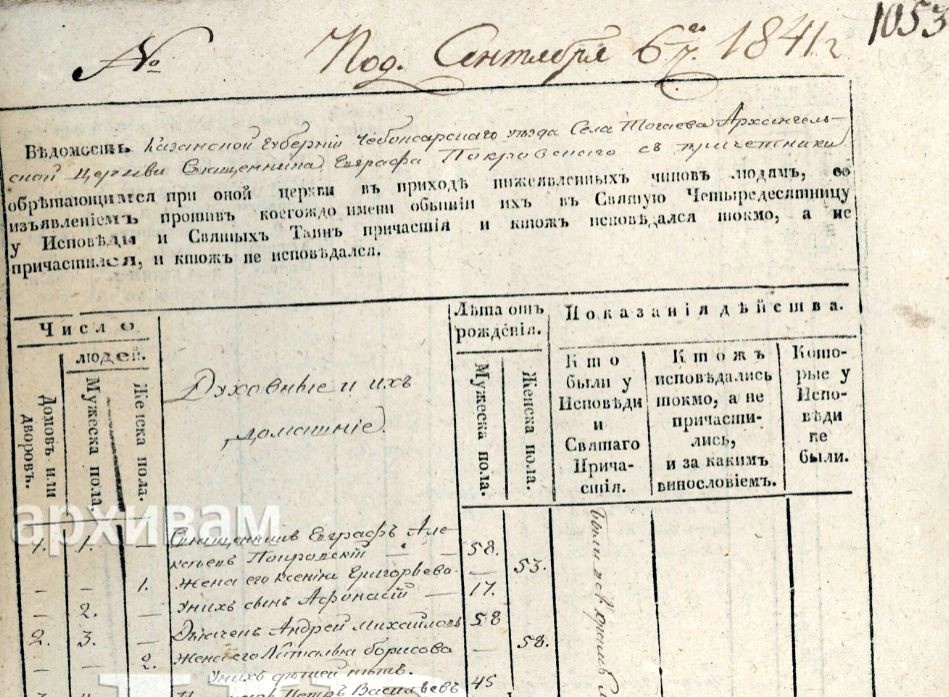 1053
№ Под. Сентября 6го ч. 1841 г.
Вѣдомость Казанской Губерніи Чебоксарскаго уѣзда Села Тогаева Архангель-
ской Церкви Священника Евграфа Покровскаго съ причетники
обрѣтающимся при оной церкви въ приходѣ нижеявленныхъ чиновъ людямъ, со
изъявленіемъ противъ коегождо имени бытіи ихъ въ Святую Четыредесятницу
у Исповѣди и Святыхъ Таинъ причастія и ктожъ исповѣдался токмо, а не
причастился, и ктожъ не исповѣдался.
Число
людей.
Домовъ или дворовъ.
Мужеска пола.
Женска пола.
Духовные и ихъ
домашніе.
Лѣта отъ
рожденія.
Мужеска пола.
Женска пола.
Показанія дѣйства.
Кто
были у
Исповѣди
и
Святаго
Прича-
стія.
Ктожъ
исповѣдались
токмо, а не
причасти-
лись,
и за какимъ
винословіемъ.
Кото-
рые у
Испо-
вѣди
не
были.
архивам
1. 1. — Священникъ Евграфъ Але-
ксѣевъ Покровскій — 58.
— — 1. Жена его Ксенія Григорьева — 53.
— 2. — У нихъ сынъ Афонасій — 17.
2. 3. — Дьячекъ Андрей Михайловъ 58
— — 2. Жена его Татьяна Борисова 58.
У нихъ дѣтей нѣтъ.
Петръ Васильевъ 45